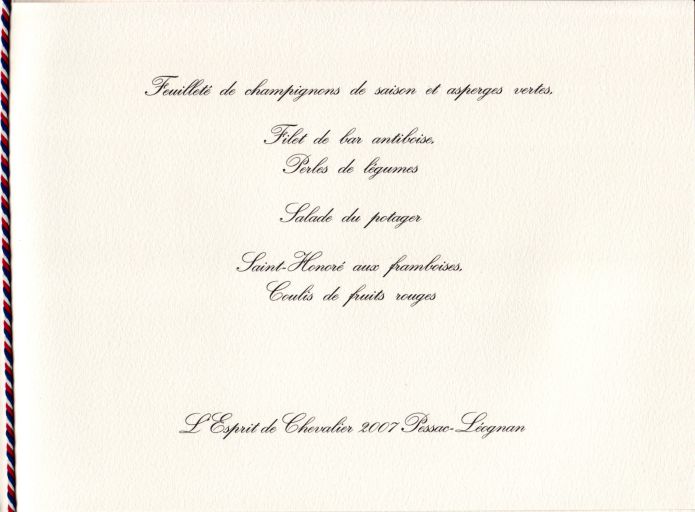 Feuilleté de champignons de saison et asperges vertes,
Filet de bar antiboise,
Perles de légumes
Salade du potager
Saint-Honoré aux framboises,
Coulis de fruits rouges
L'Esprit de Chevalier 2007 Pessac-Léognan